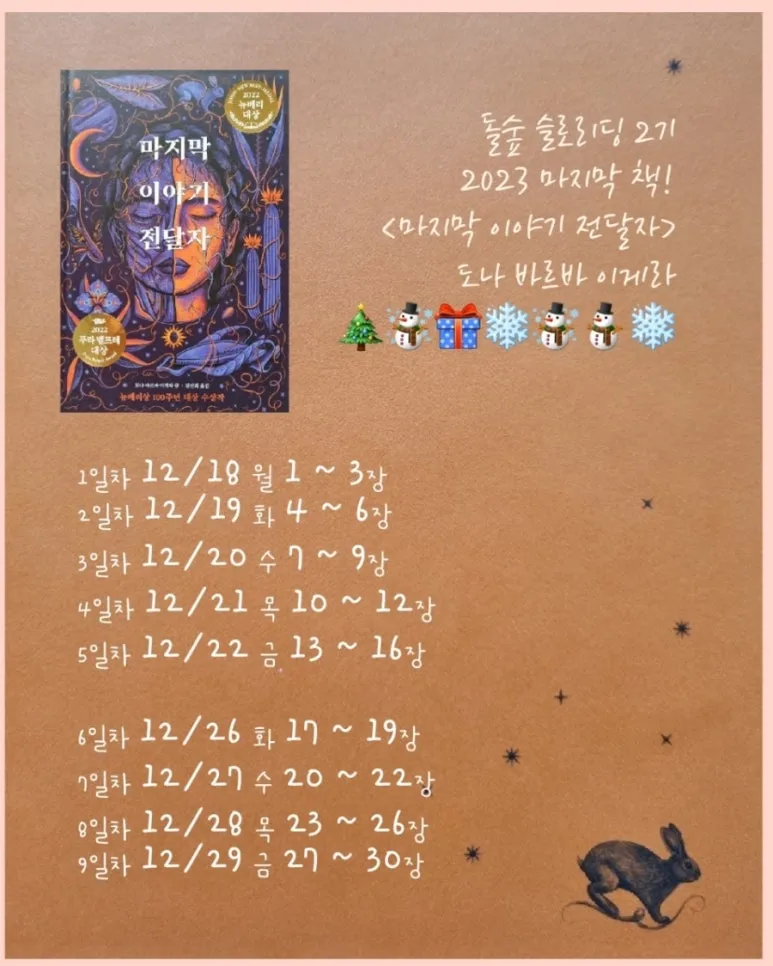 2022
뉴베리
대상
마지막
이야기
전달자
2022
푸라 벨프레
대상
도나 바르바 이게라 글 · 김선희 옮김
뉴베리상 100주년 대상 수상작
돌숲 슬로리딩 2기
2023 마지막 책!
<마지막 이야기 전달자>
도나 바르바 이게라
1일차 12/18 월 1 ~ 3장
2일차 12/19 화 4 ~ 6장
3일차 12/20 수 7 ~ 9장
4일차 12/21 목 10 ~ 12장
5일차 12/22 금 13 ~ 16장
6일차 12/26 화 17 ~ 19장
7일차 12/27 수 20 ~ 22장
8일차 12/28 목 23 ~ 26장
9일차 12/29 금 27 ~ 30장